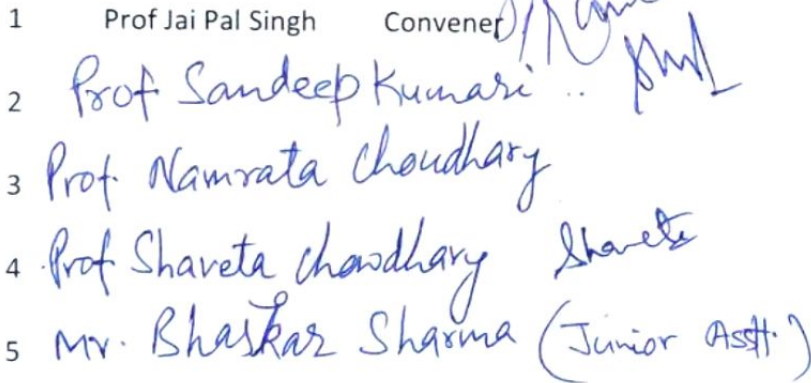 1 Prof Jai Pal Singh Convener
2 Prof Sandeep Kumari ..
3 Prof. Namrata Choudhary
4 Prof Shaveta Chowdhary Shaveta
5 Mr. Bhaskar Sharma (Junior Asstt.)